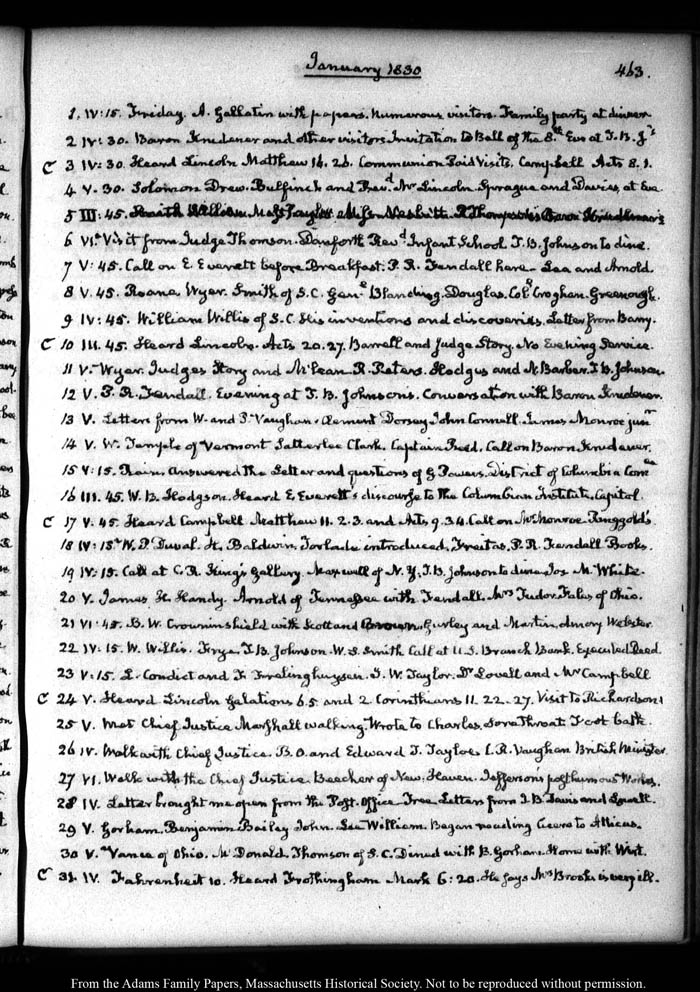 January 1830
463.
1. IV:15. Friday. A. Gallatin with papers. Numerous visitors. Family party at dinner
2 IV:30. Baron Krudener and other visitors Invitation to Ball of the 8th Eve at T. B. J's
C 3 IV:30. Heard Lincoln Matthew 16. 26. Communion Paid Visits. Campbell Acts 8. 1.
4 V. 30. Solomon Drew. Bulfinch and Revd Mr Lincoln Sprague and Davis, at Eve
5 III:45. Smith William Mrs Nesbitt Baron Krudener's
6 VI. Visit from Judge Thomson. Danforth Revd Infant School T. B. Johnson to dine.
7 V:45. Call on E. Everett before Breakfast. P. R. Fendall here. Lea and Arnold.
8 V. 45. Roane Wyer. Smith of S. C. Genl Blanding. Douglas. Coll Croghan. Greenough.
9 IV:45. William Willis of S. C. His inventions and discoveries. Letter from Barry.
C 10 III. 45. Heard Lincoln. Acts 20. 27. Barrell and Judge Story. No Evening Service.
11 V. Wyer. Judges Story and McLean. R. Peters. Hodgus and N. Barber. T. B. Johnson
12 V. P. R. Fendall. Evening at T. B. Johnson's. Conversation with Baron Krudener.
13 V. Letters from W. and P. Vaughan. Clement Dorsey John Connell. James Monroe junr
14 V. W. Temple of Vermont Satterlee Clark. Captain Read. Call on Baron Krudener.
15 V:15. Rain. Answered the Letter and questions of G Powers. District of Columbia
16 III. 45. W. B. Hodgson. Heard E. Everett's discourse to the Columbian Institute. Capitol.
C 17 V. 45. Heard Campbell Matthew 11. 2. 3. and Acts 9. 34. Call on Mr Monroe. Ringgold's
18 IV:15. W. P. Duval. H. Baldwin. Torlade introduced. Freitas. P. R. Fendall Books.
19 IV:15. Call at C. B. King's Gallery. Maxwell of N. Y. T. B. Johnson to dine Jos M. White.
20 V. James H. Handy. Arnold of Tennessee with Fendall. Mrs Tudor. Fales of Ohio.
21 VI:45. B. W. Crowninshield with Scott and Brown. Gurley and Martin. Emory Webster.
22 IV:15. W. Willis. Frye. T. B. Johnson. W. S. Smith Call at U. S. Branch Bank. Executed Deed.
23 V:15. L. Condict and F. Frelinghuysen. J. W. Taylor. Dr Lovell and Mr Campbell
C 24 V. Heard Lincoln Galations 6. 5 and 2 Corinthians 11. 22-27. Visit to Richardson
25 V. Met Chief Justice Marshall walking. Wrote to Charles. Sore Throat Foot bath.
26 IV. Walk with Chief Justice. B. O. and Edward T. Tayloe. C. R. Vaughan British Minister
27 VI. Walk with the Chief Justice. Beecher of New Haven. Jefferson's posthumous Works.
28 IV. Letter brought me open from the Post Office Free. Letters from J. B. Davis and Lowell.
29 V. Gorham. Benjamin Bailey John. Lee William. Began reading Cicero to Atticus.
30 V. Vance of Ohio. McDonald. Thomson of S. C. Dined with B. Gorham. Home with Wirt.
C 31. IV. Fahrenheit 10. Heard Frothingham Mark 6:20. He says Mrs Brooks is very ill.
From the Adams Family Papers, Massachusetts Historical Society. Not to be reproduced without permission.